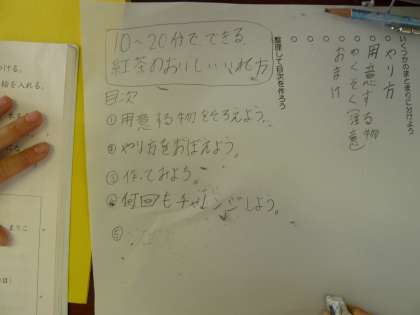 いくつかのまとまりに分けよう
やり方
用意する物
やくそく(注意)
おまけ
整理して目次を作ろう
10～20分でできる
紅茶のおいしいいれ方
目次
①用意する物をそろえよう。
②やり方をおぼえよう。
③作ってみよう。
④何回もチャレンジしよう。
⑤
絵を入れる。